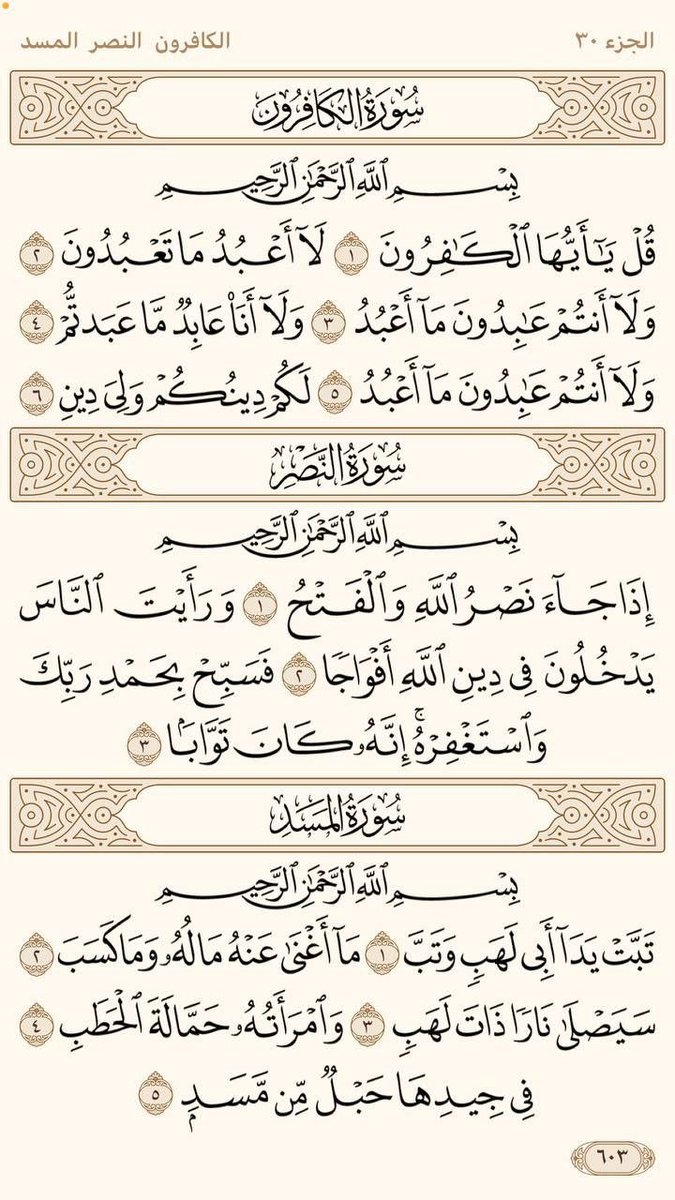 الجزء ٣٠
الكافرون النصر المسد
سُورَةُ الكَافِرُونَ
بِسْمِ ٱللَّهِ ٱلرَّحْمَٰنِ ٱلرَّحِيمِ
قُلْ يَٰٓأَيُّهَا ٱلْكَٰفِرُونَ ١ لَآ أَعْبُدُ مَا تَعْبُدُونَ ٢
وَلَآ أَنتُمْ عَٰبِدُونَ مَآ أَعْبُدُ ٣ وَلَآ أَنَا۠ عَابِدٌ مَّا عَبَدتُّمْ ٤
وَلَآ أَنتُمْ عَٰبِدُونَ مَآ أَعْبُدُ ٥ لَكُمْ دِينُكُمْ وَلِيَ دِينِ ٦
سُورَةُ النَّصْرِ
بِسْمِ ٱللَّهِ ٱلرَّحْمَٰنِ ٱلرَّحِيمِ
إِذَا جَآءَ نَصْرُ ٱللَّهِ وَٱلْفَتْحُ ١ وَرَأَيْتَ ٱلنَّاسَ
يَدْخُلُونَ فِي دِينِ ٱللَّهِ أَفْوَاجًا ٢ فَسَبِّحْ بِحَمْدِ رَبِّكَ
وَٱسْتَغْفِرْهُۚ إِنَّهُۥ كَانَ تَوَّابَۢا ٣
سُورَةُ المَسَدِ
بِسْمِ ٱللَّهِ ٱلرَّحْمَٰنِ ٱلرَّحِيمِ
تَبَّتْ يَدَآ أَبِي لَهَبٍ وَتَبَّ ١ مَآ أَغْنَىٰ عَنْهُ مَالُهُۥ وَمَا كَسَبَ ٢
سَيَصْلَىٰ نَارًا ذَاتَ لَهَبٍ ٣ وَٱمْرَأَتُهُۥ حَمَّالَةَ ٱلْحَطَبِ ٤
فِي جِيدِهَا حَبْلٌ مِّن مَّسَدٍۭ ٥
٦٠٣